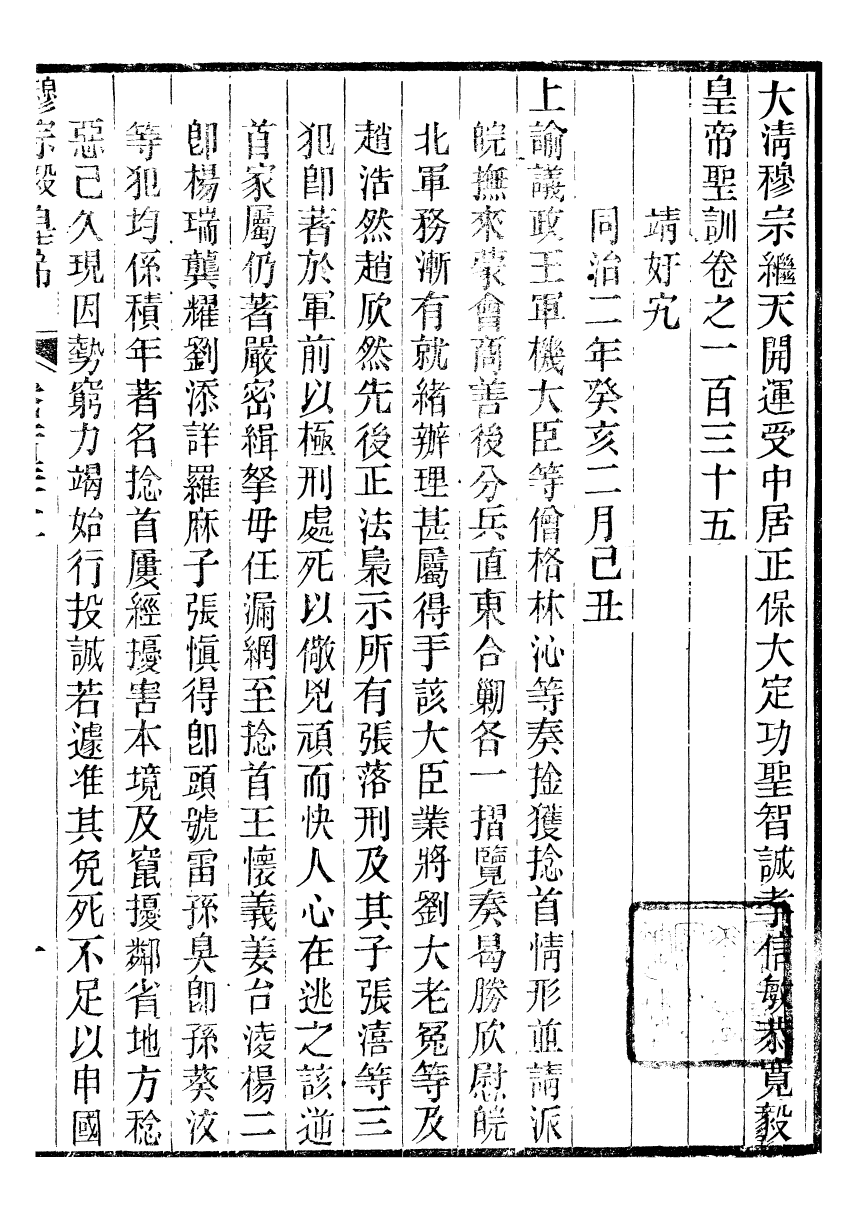 大清穆宗繼天開運受中居正保大定功聖智誠孝信敏恭寬毅
皇帝聖訓卷之一百三十五
靖奸宄
同治二年癸亥二月己丑
上諭議政王軍機大臣等僧格林沁等奏擒獲捻首情形並請派
皖撫來豪會商善後分兵直東合勦各一摺覽奏曷勝欣慰皖
北軍務漸有就緒辦理甚屬得手該大臣業將劉大老冤等及
趙浩然趙欣然先後正法梟示所有張落刑及其子張漋等三
犯卽著於軍前以極刑處死以儆兇頑而快人心在逃之該逆
首家屬仍著嚴密緝拏毋任漏網至捻首王懷義姜台淩楊二
卽楊瑞龔耀劉添詳羅麻子張愼得卽頭號雷孫臭卽孫葵汶
等犯均係積年著名捻首屢經擾害本境及竄擾鄰省地方稔
惡已久現因勢窮力竭始行投誠若遽准其免死不足以申國
穆宗毅皇帝
一